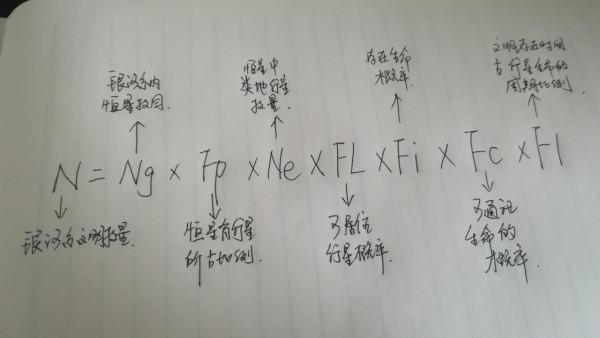 银河系内
恒星数目.
恒星中
类地行星
数量.
存在生命
概率.
文明存在时间
占行星生命的
周期比例.
N = Ng × Fp × Ne × FL × Fi × Fc × Fl
银河系文明数量.
恒星有行星
所占比例
可居住
行星概率.
可通讯
生命的
概率.